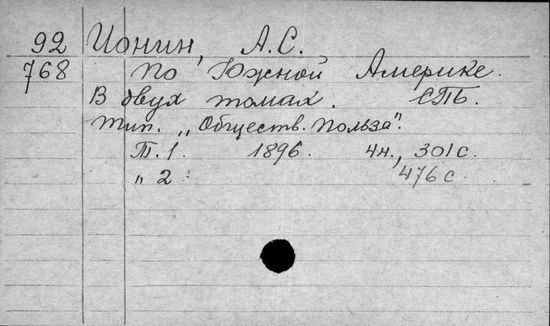 92 Ионин, А.С.
768 По Южной Америке.
В двух томах. СПБ.
тип. „Обществ. Польза".
Т. 1. 1896. 4н., 301с.
„ 2 476с.